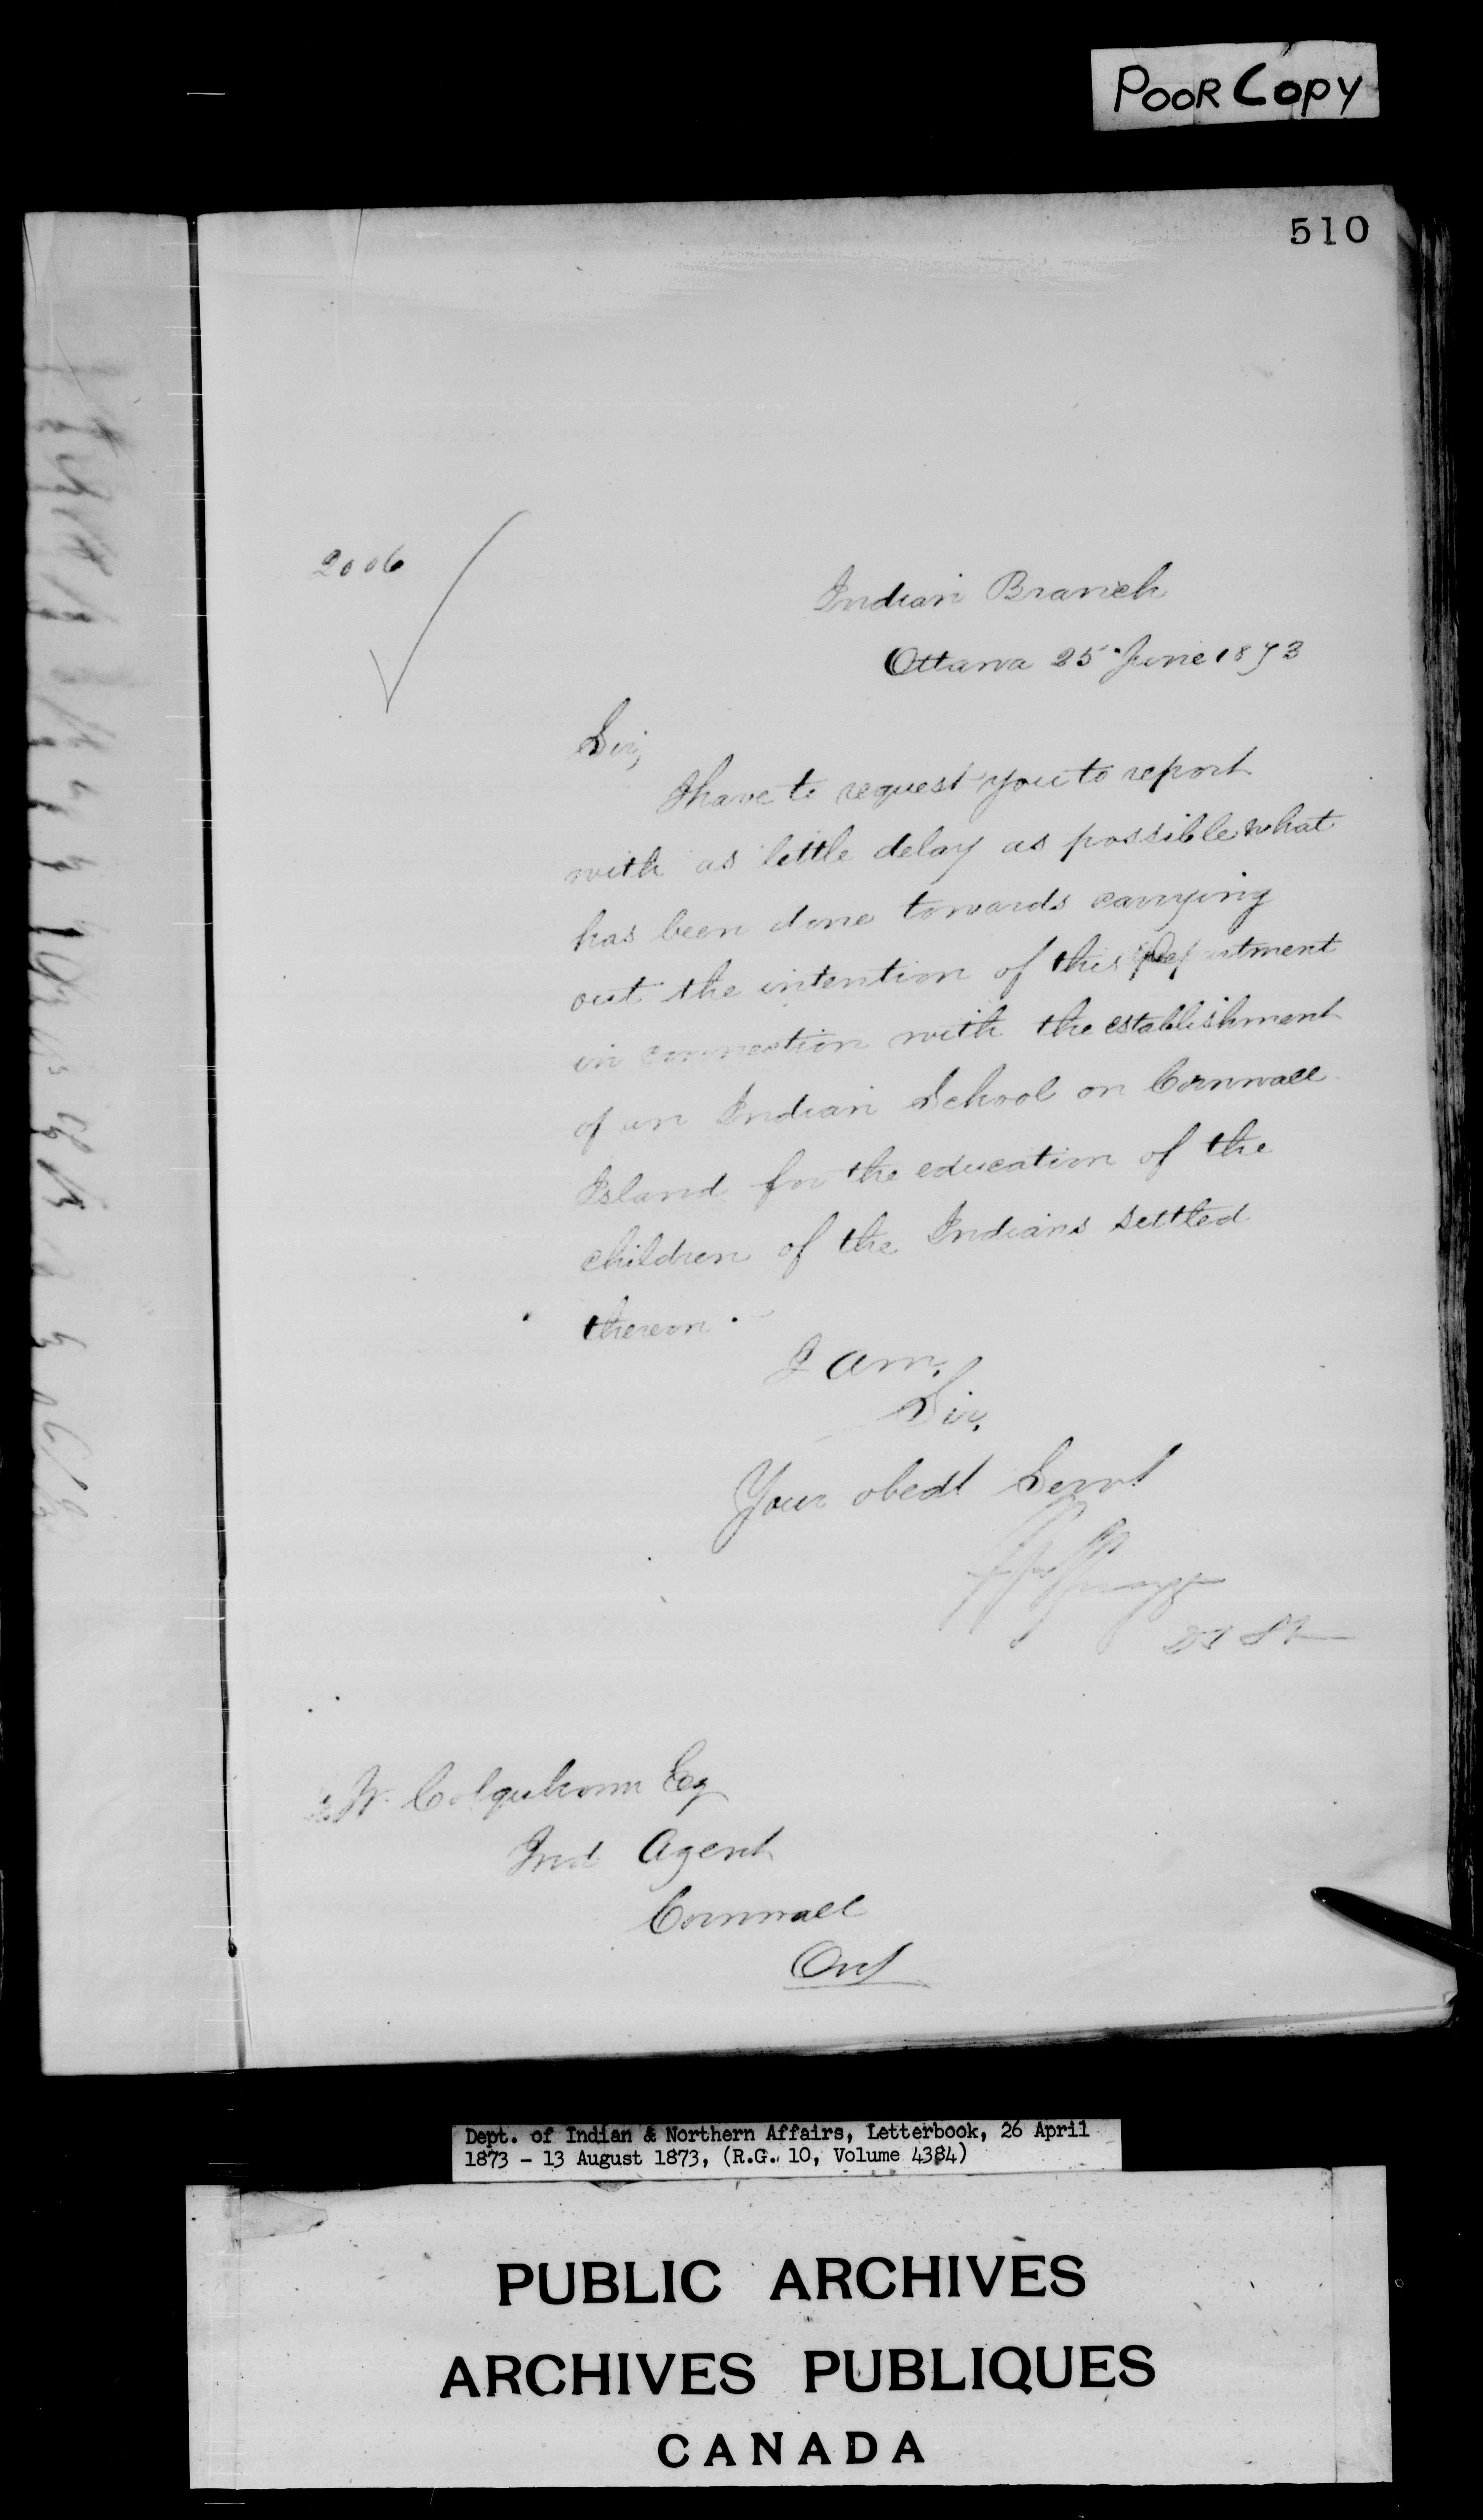 POOR COPY
510
2006
Indian Branch
Ottawa 25 June 1873
Sir,
I have to request you to report
with as little delay as possible what
has been done towards carrying
out the intention of this Department
in connection with the establishment
of an Indian School on Cornwall
Island for the education of the
children of the Indians settled
thereon.
I am,
Sir,
Your obedt Servt
W. Colquhoun Esq
Ind Agent
Cornwall
Ont
Dept. of Indian & Northern Affairs, Letterbook, 26 April
1873 - 13 August 1873, (R.G. 10, Volume 4384)
PUBLIC ARCHIVES
ARCHIVES PUBLIQUES
CANADA